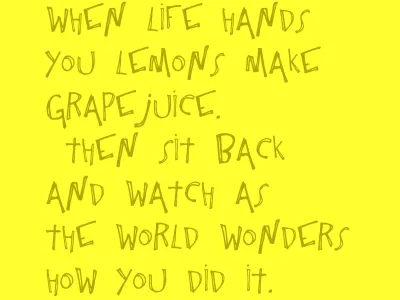 WHEN LIFE HANDS
YOU LEMONS MAKE
GRAPEJUICE.
THEN SIT BACK
AND WATCH AS
THE WORLD WONDERS
HOW YOU DID IT.